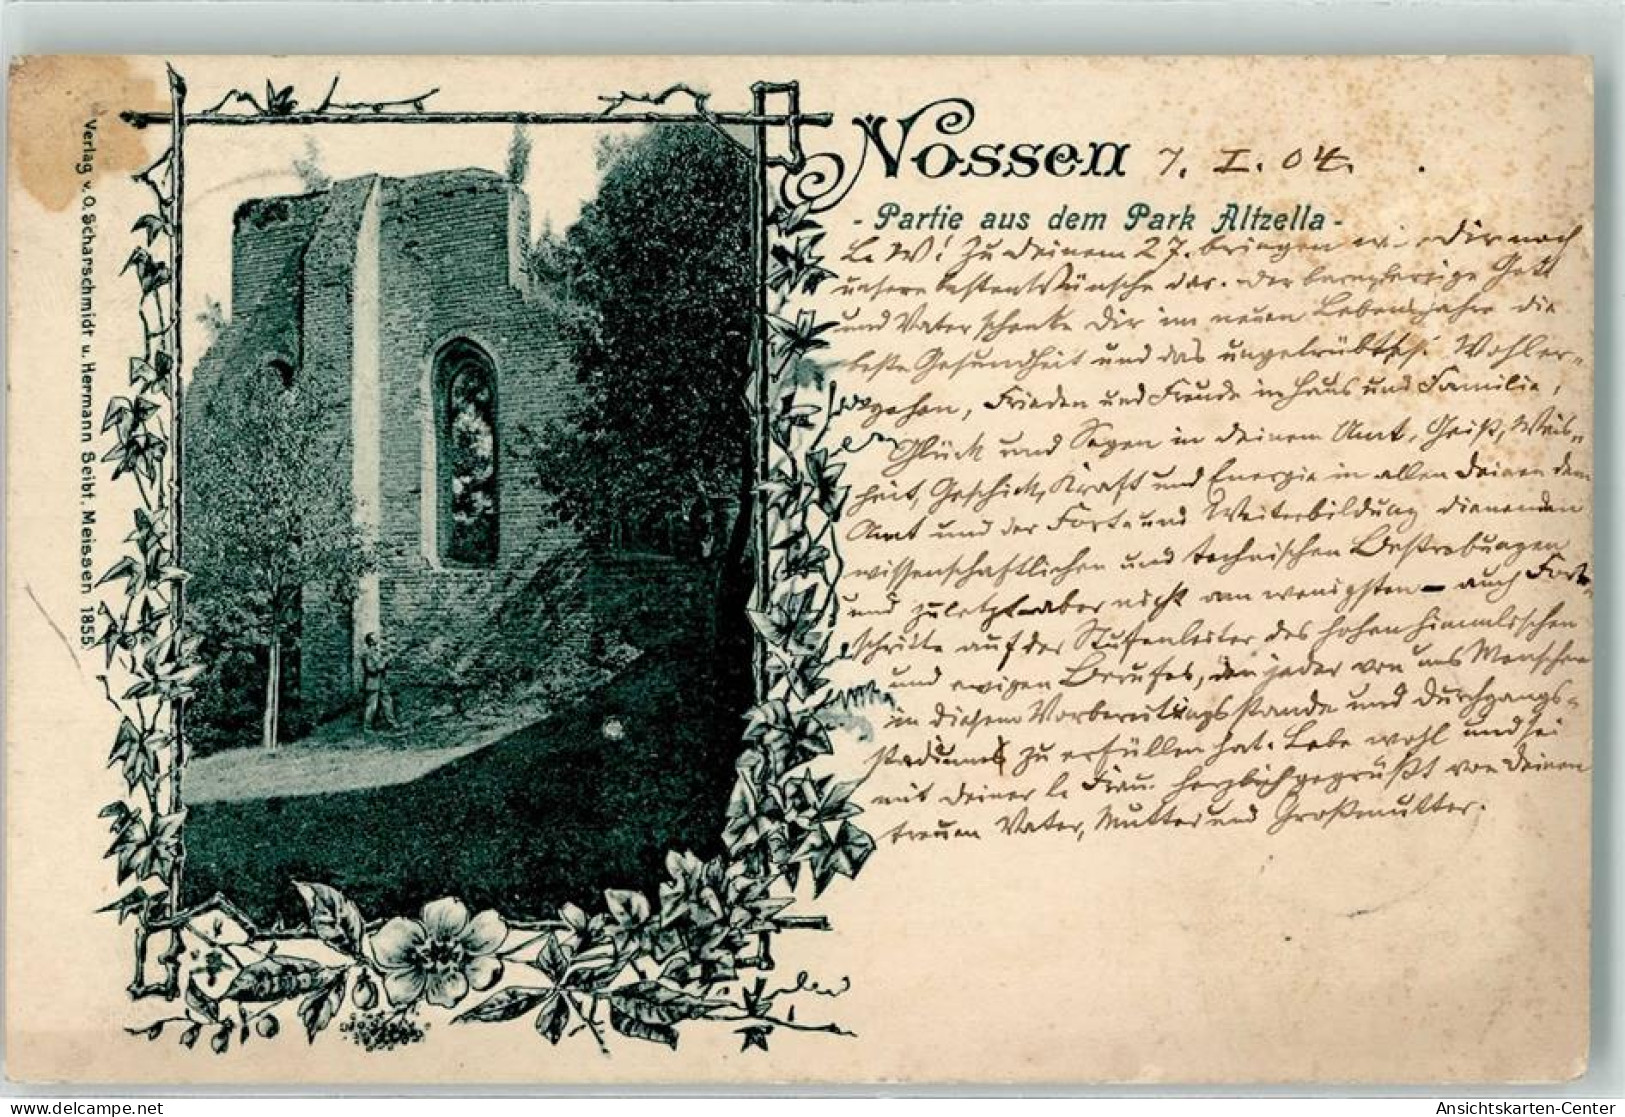 Nossen 7. I. 04.
- Partie aus dem Park Altzella -
L. W! Zu Deinem 27. bringen wir Dir noch
unsere besten Wünsche dar. Der barmherzige Gott
und Vater schenke Dir im neuen Lebensjahre die
beste Gesundheit und das ungetrübtste Wohler-
gehen, Frieden und Freude in Haus und Familie,
Glück und Segen in Deinem Amt, Geist, Weis-
heit, Geschick, Kraft und Energie in allen Deinen dem
Amt und der Fort= und Weiterbildung dienenden
wissenschaftlichen und technischen Bestrebungen
und zuletzt aber nicht am wenigsten – auch Fort-
schritte auf der Stufenleiter des hohen himmlischen
und ewigen Berufes, den jeder von uns Menschen
in diesem Vorbereitungsstande und Durchgangs-
stadium zu erfüllen hat. Lebe wohl und sei
mit Deiner l. Frau herzlich gegrüßt von Deinen
treuen Vater, Mutter und Großmutter.
Verlag v. O. Scharschmidt u. Hermann Seibt, Meissen 1855
Ansichtskarten-Center